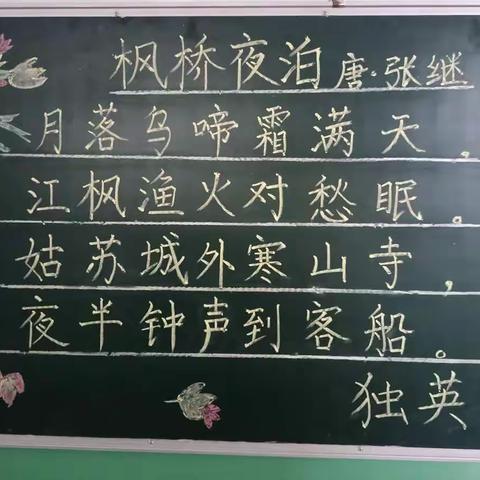 枫桥夜泊 唐·张继
月落乌啼霜满天，
江枫渔火对愁眠。
姑苏城外寒山寺，
夜半钟声到客船。
独英